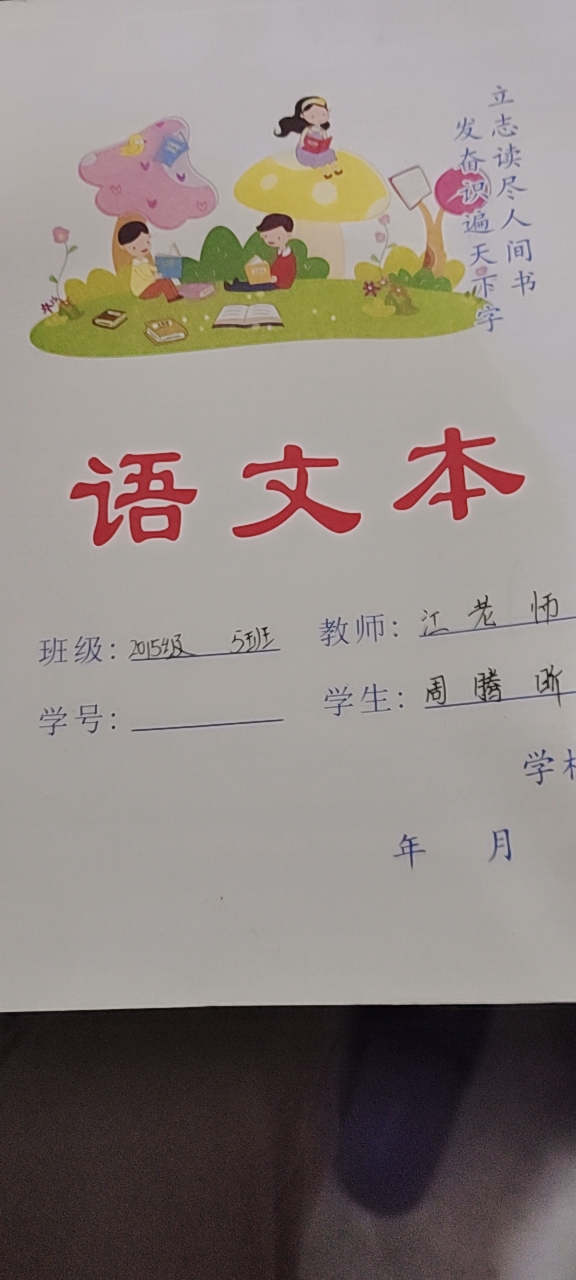 立志读尽人间书
发奋识遍天下字
语文本
班级：2015级 5班 教师：江老师
学号： 学生：周腾昕
学
年 月